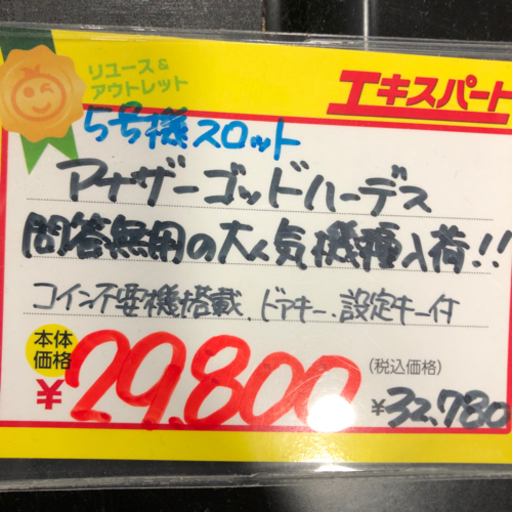 リユース&
アウトレット
エキスパート
5号機スロット
アナザーゴッドハーデス
問答無用の大人気機種入荷!!
コイン不要機搭載、ドアキー、設定キー付
本体
価格
¥29,800
(税込価格)
¥32,780